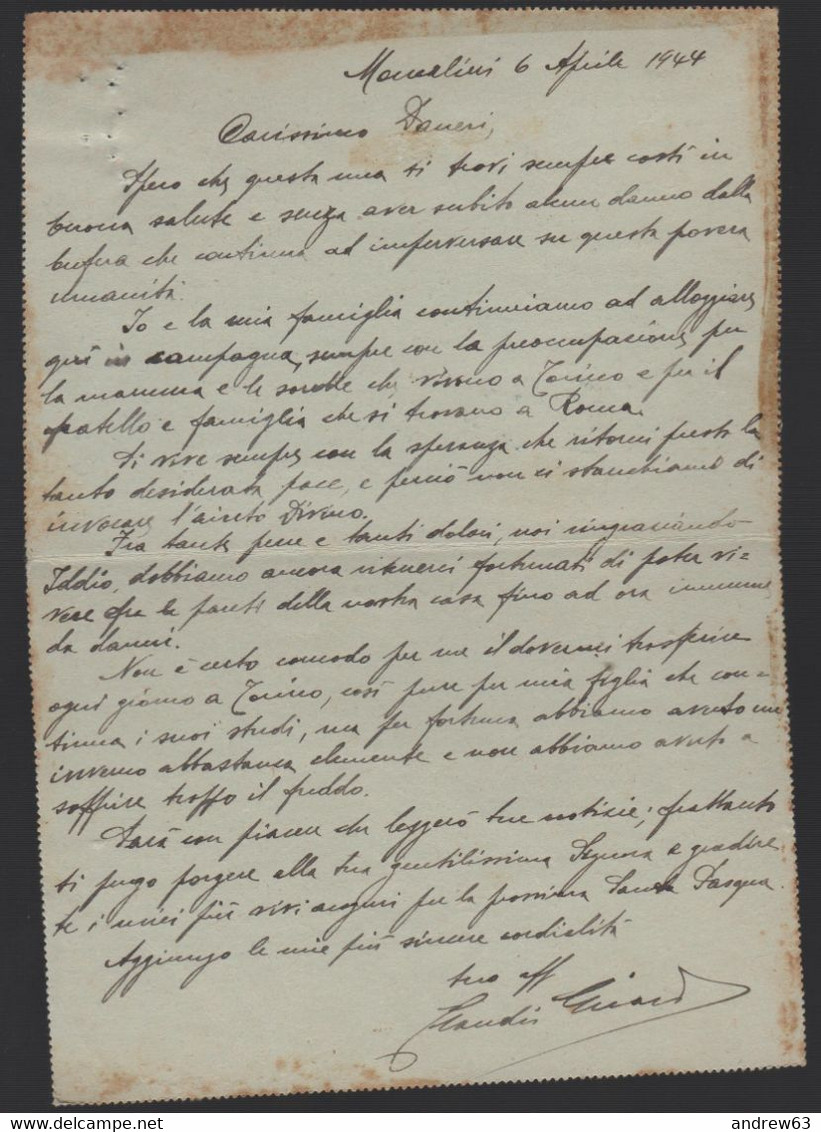 Moncalieri 6 Aprile 1944
Carissimo Daneri,
Spero che questa mia ti trovi sempre costì in
buona salute e senza aver subito alcun danno dalla
bufera che continua ad imperversare su questa povera
umanità.
Io e la mia famiglia continuiamo ad alloggiare
quì in campagna, sempre con la preoccupazione per
la mamma e le sorelle che vivono a Torino e per il
fratello e famiglia che si trovano a Roma.
Si vive sempre con la speranza che ritorni presto la
tanto desiderata pace, e perciò non ci stanchiamo di
invocare l'aiuto Divino.
Fra tante pene e tanti dolori, noi ringraziando
Iddio, dobbiamo ancora ritenerci fortunati di poter vi=
vere fra le pareti della nostra casa fino ad ora immune
da danni.
Non è certo comodo per me il dovermi trasferire
ogni giorno a Torino, così pure per mia figlia che con=
tinua i suoi studi, ma per fortuna abbiamo avuto un
inverno abbastanza clemente e non abbiamo avuto a
soffrire troppo il freddo.
Sarà con piacere che leggerò tue notizie; frattanto
ti prego porgere alla tua gentilissima Signora e gradire
te i miei più vivi auguri per la prossima Santa Pasqua.
Aggiungo le mie più sincere cordialità
tuo aff
Claudio
andrew63